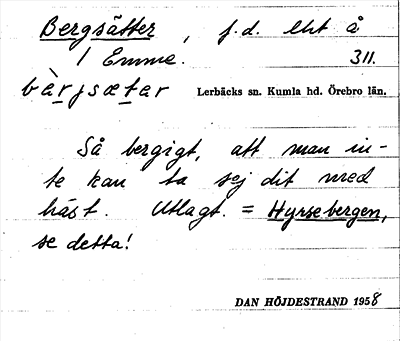 Bergsätter, f.d. lht å
1 Emme. 311.
bàrjsætar Lerbäcks sn. Kumla hd. Örebro län.
Så bergigt, att man in-
te kan ta sej dit med
häst. Utlagt. = Hyrsebergen,
se detta!
DAN HÖJDESTRAND 1958